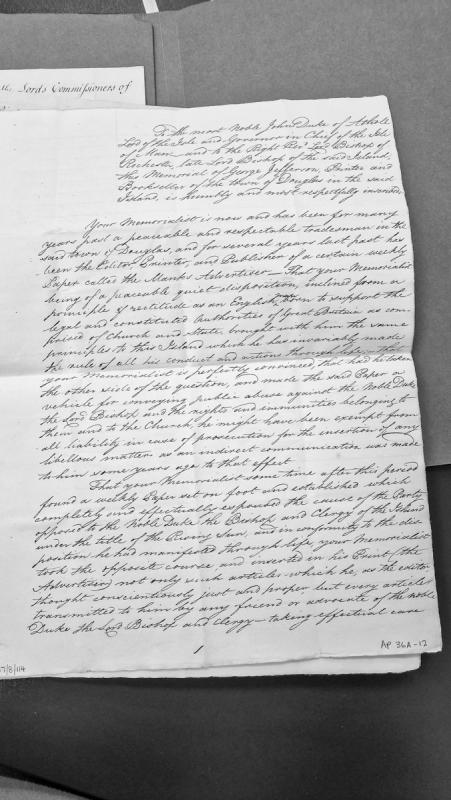 the Lords Commissioners of
To the most Noble John Duke of Atholl
Lord of the Isle and Governor in Chief of the Isle
of Mann and to the Right Revd. Lord Bishop of
Rochester late Lord Bishop of the said Island,
the Memorial of George Jefferson, Printer and
Bookseller of the town of Douglas in the said
Island, is humbly and most respectfully
Your Memorialist is now and has been for many
years past a peaceable and respectable tradesman in the
said town of Douglas, and for several years last past has
been the Editor, Printer, and Publisher of a certain weekly
Paper called the Manks Advertiser — That your Memorialist
being of a peaceable quiet disposition, inclined from a
principle of rectitude as an English man to support the
legal and constituted authorities of Great Britain as com
posed of Church and State, brought with him the same
principles to this Island which he has invariably made
the rule of all his conduct and actions through life — That
your Memorialist is perfectly convinced that had he taken
the other side of the question, and made the said Paper a
vehicle for conveying public abuse against the Noble Duke
the Lord Bishop and the rights and immunities belonging to
them and to the Church, he might have been exempt from
all liability in case of prosecution for the insertion of any
libellous matter as an indirect communication was made
to him some years ago to that effect
That your Memorialist some time after this period
found a weekly Paper set on foot and established which
completely and effectually espoused the cause of the Party
opposed to the Noble Duke the Bishop and Clergy of the Island
under the title of the Rising Sun, and in conformity to the dis
position he had manifested through life, your Memorialist
took the opposite course and inserted in his Print (the
Advertiser) not only such articles which he, as the editor
thought conscientiously just and proper but every article
transmitted to him by any friend or advocate of the noble
Duke the Lord Bishop and Clergy — taking effectual care
1
AP 36A-12
57/8/114